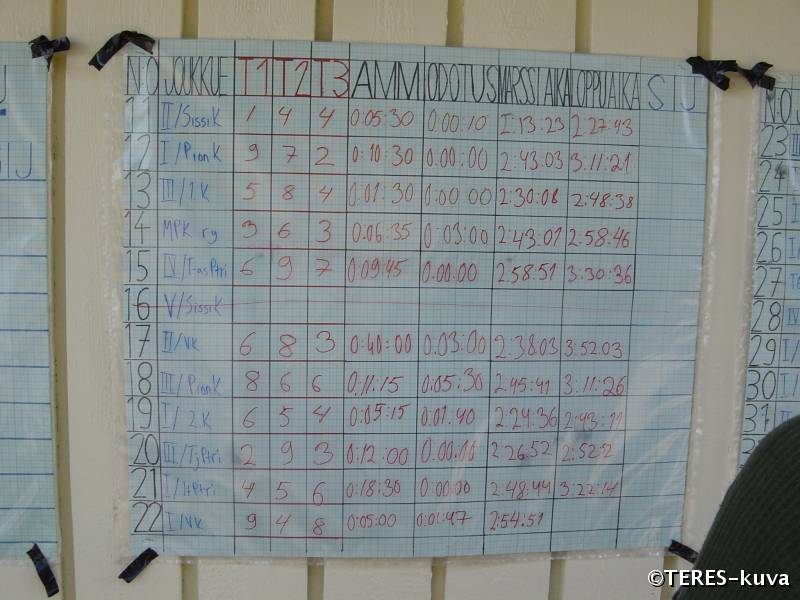 N:O JOUKKUE T1 T2 T3 AMM ODOTUS MARSSI AIKA LOPPUAIKA S IJ
11 II/SissiK 1 4 4 0:05:30 0.00:10 2:27:43
12 I/PionK 9 7 2 0:10:30 0.00:00 2:43.03 3:11:21
13 III/1.K 5 8 4 0:01:30 0:00:00 2:30:08 2:48:38
14 MPK ry 3 6 3 0:06:35 0:03:00 2:43.01 2:58:46
15 IV/T-asPtri 6 9 7 0:09:45 0.00:00 2:58:51 3:30:36
16 V/SissiK
17 II/VK 6 8 3 0:40:00 0.03:00 2:38.03 3:52.03
18 III/PionK 8 6 6 0:11:15 0:05:30 2:45:41 3:11:26
19 I/2.K 6 5 4 0:05:15 0.01:40 2:24:36 2:43:11
20 III/TjPtri 2 9 3 0:12:00 2:26:52
21 4 5 6 0:18:30 0:00:00 2:48:44 3:22:14
22 I/VK 9 4 8 0:05:00 0:01:47 2:54:51
N:O
23
24
25
26
27
28
29
30
31
©TERES-kuva